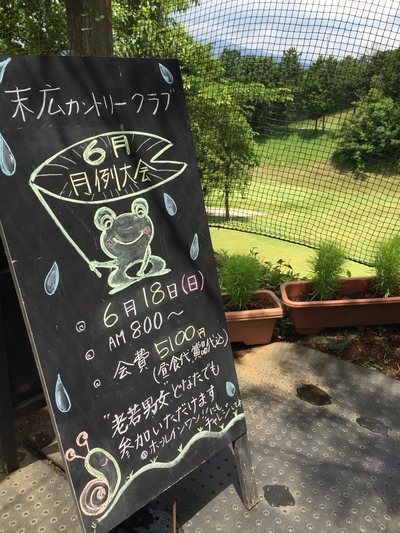 末広カントリークラブ
6月
月例大会
◎ 6月18日(日)
◎ AM 800～
◎ 会費 5100円
(昼食代賞品代込)
"老若男女"どなたでも
参加いただけます
◎ホールインワンにも
チャレンジ